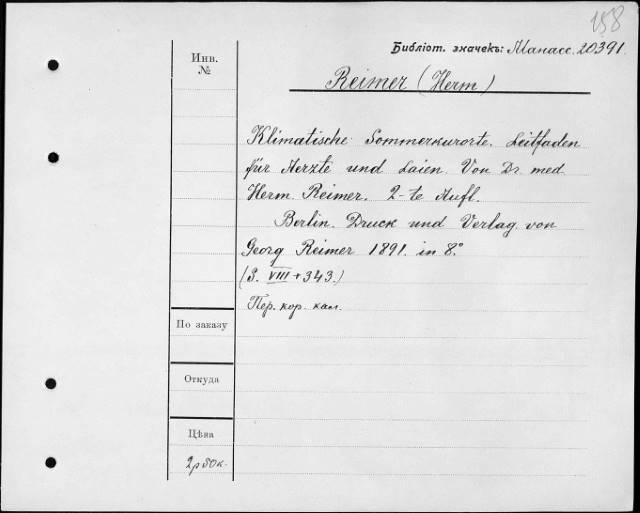 158
Библіот. значекъ: Манасс. 20391.
Инв.
№
Reimer (Herm)
Klimatische Sommerkurorte. Leitfaden
für Aerzte und Laien. Von Dr. med.
Herm. Reimer. 2-te Aufl.
Berlin. Druck und Verlag von
Georg Reimer 1891. in 8.°
(S. VIII + 343.)
Пер. кор. кал.
По заказу
Откуда
Цѣна
2р 50к.